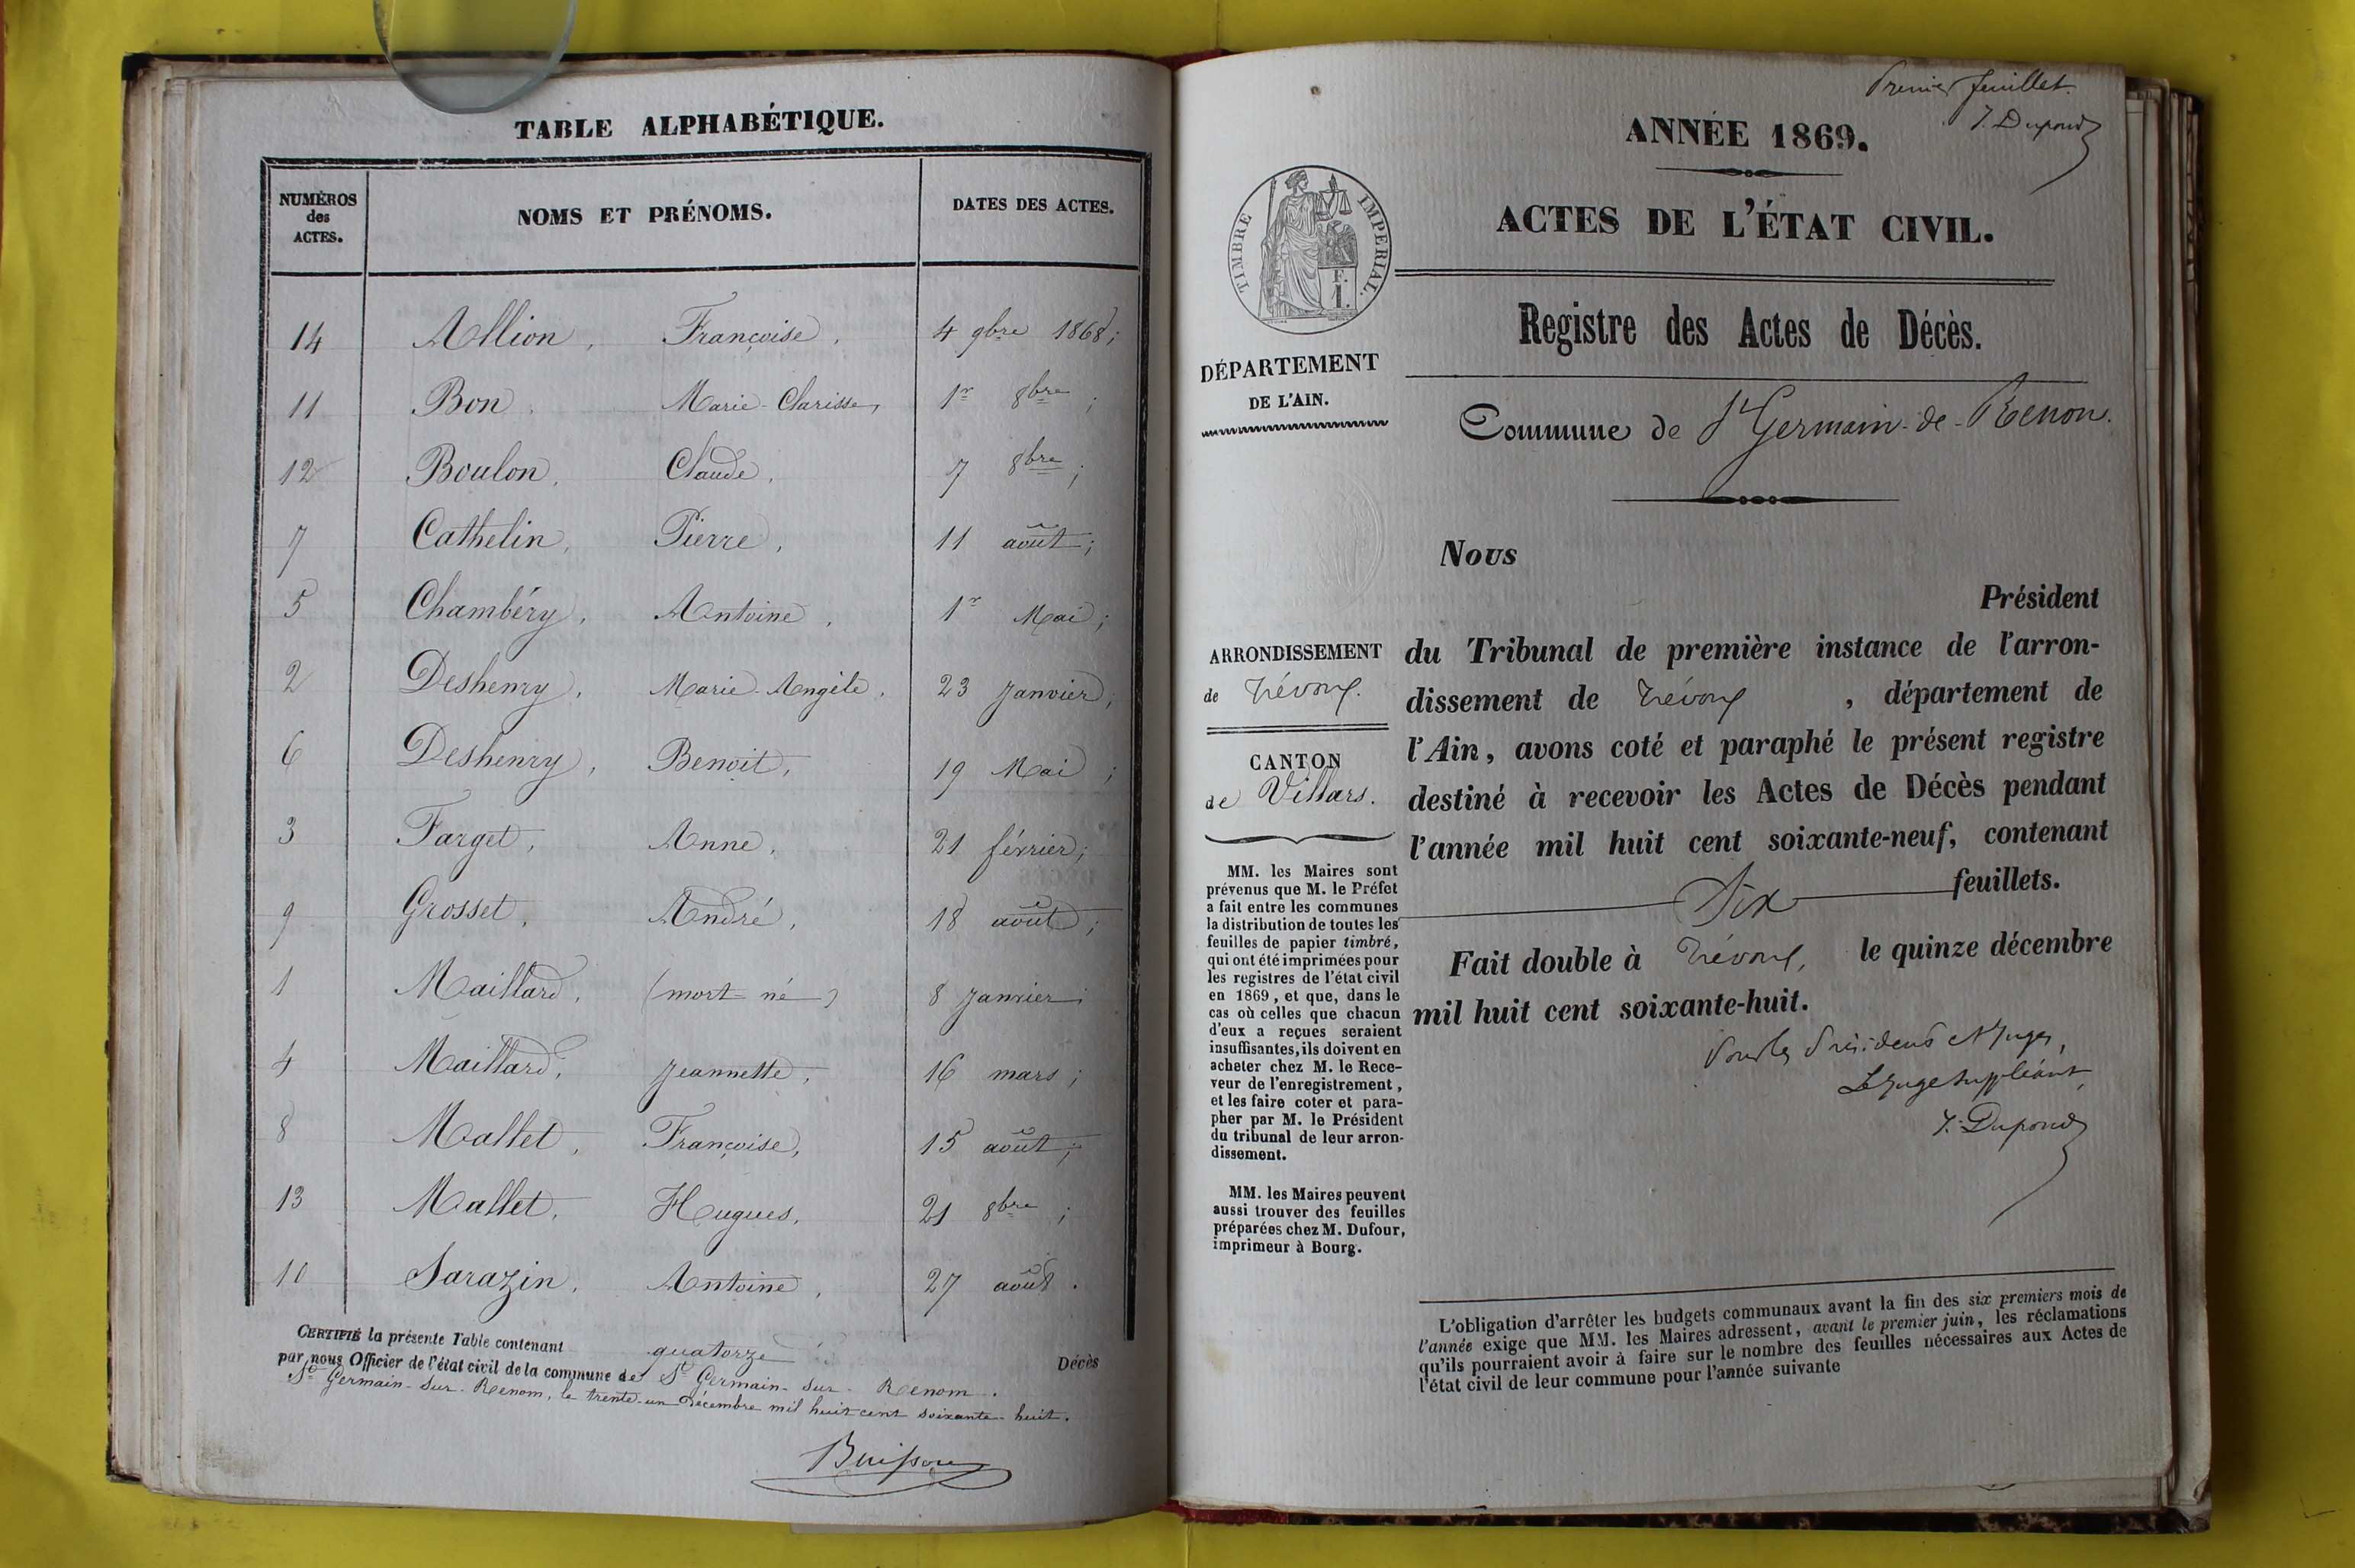 TABLE ALPHABÉTIQUE.
NUMÉROS des ACTES. NOMS ET PRÉNOMS. DATES DES ACTES.
14 Allion, Françoise, 4 9bre 1868;
11 Bon, Marie-Clarisse, 1r 8bre;
12 Boulon, Claude, 7 8bre;
7 Cathelin, Pierre, 11 août;
5 Chambéry, Antoine, 1r Mai;
2 Deshenry, Marie-Angèle, 23 Janvier;
6 Deshenry, Benoit, 19 Mai;
3 Farget, Anne, 21 février;
9 Grosset, André, 18 août;
1 Maillard, (mort-né) 8 Janvier;
4 Maillard, Jeannette, 16 mars;
8 Mallet, Françoise, 15 août;
13 Mallet, Hugues, 21 8bre;
10 Sarazin, Antoine, 27 août.
CERTIFIÉ la présente Table contenant quatorze Décès
par nous Officier de l'état civil de la commune de St Germain-sur-Renom.
St Germain-sur-Renom, le trente-un Décembre mil huit cent soixante-huit.
Buisson
Premier feuillet.
J. Dupond
ANNÉE 1869.
ACTES DE L'ÉTAT CIVIL.
TIMBRE IMPÉRIAL.
F.
1.
Registre des Actes de Décès.
DÉPARTEMENT
DE L'AIN.
Commune de St Germain-de-Renon.
Nous
Président
ARRONDISSEMENT
de Trévoux.
CANTON
de Villars.
du Tribunal de première instance de l'arron-
dissement de Trévoux, département de
l'Ain, avons coté et paraphé le présent registre
destiné à recevoir les Actes de Décès pendant
l'année mil huit cent soixante-neuf, contenant
Six feuillets.
Fait double à Trévoux, le quinze décembre
mil huit cent soixante-huit.
Pour les Présidents et Juges,
Le Juge suppléant,
J. Dupond
MM. les Maires sont
prévenus que M. le Préfet
a fait entre les communes
la distribution de toutes les
feuilles de papier timbré,
qui ont été imprimées pour
les registres de l'état civil
en 1869, et que, dans le
cas où celles que chacun
d'eux a reçues seraient
insuffisantes, ils doivent en
acheter chez M. le Rece-
veur de l'enregistrement,
et les faire coter et para-
pher par M. le Président
du tribunal de leur arron-
dissement.
MM. les Maires peuvent
aussi trouver des feuilles
préparées chez M. Dufour,
imprimeur à Bourg.
L'obligation d'arrêter les budgets communaux avant la fin des six premiers mois de
l'année exige que MM. les Maires adressent, avant le premier juin, les réclamations
qu'ils pourraient avoir à faire sur le nombre des feuilles nécessaires aux Actes de
l'état civil de leur commune pour l'année suivante